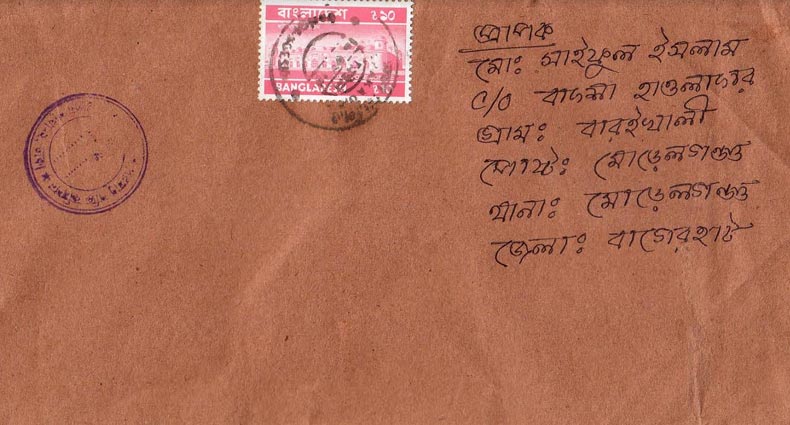 বাংলাদেশ ৳১০
BANGLADESH
প্রাপক
মোঃ সাইফুল ইসলাম
C/O বাদশা হাওলাদার
গ্রাম: বারইখালী
পোষ্ট: মোড়েলগঞ্জ
থানাঃ মোড়েলগঞ্জ
জেলাঃ বাগেরহাট